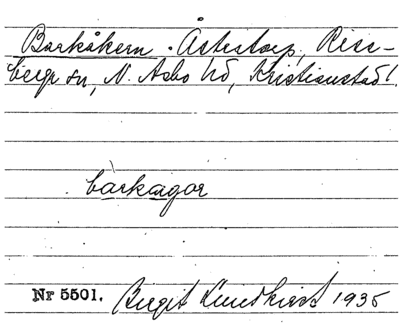 Barkåkern. Åstertorp, Riss-
berga sn, N. Asbo hd, Kristianstad l.
barkagor
Nr 5501. Birgit Lundkvist 1935